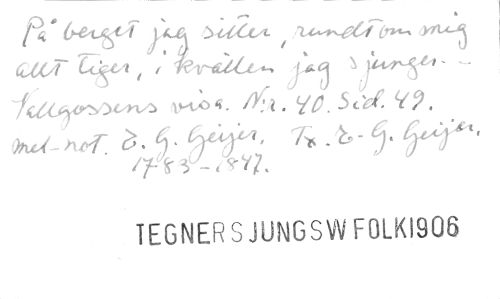 På berget jag sitter, rundt om mig
allt tiger, i kvällen jag sjunger. -
Vallgossens visa. N:r. 40. Sid. 49.
mel-not. E. G. Geijer, Tx. E. G. Geijer,
1783-1847.
TEGNERSJUNGSWFOLK1906